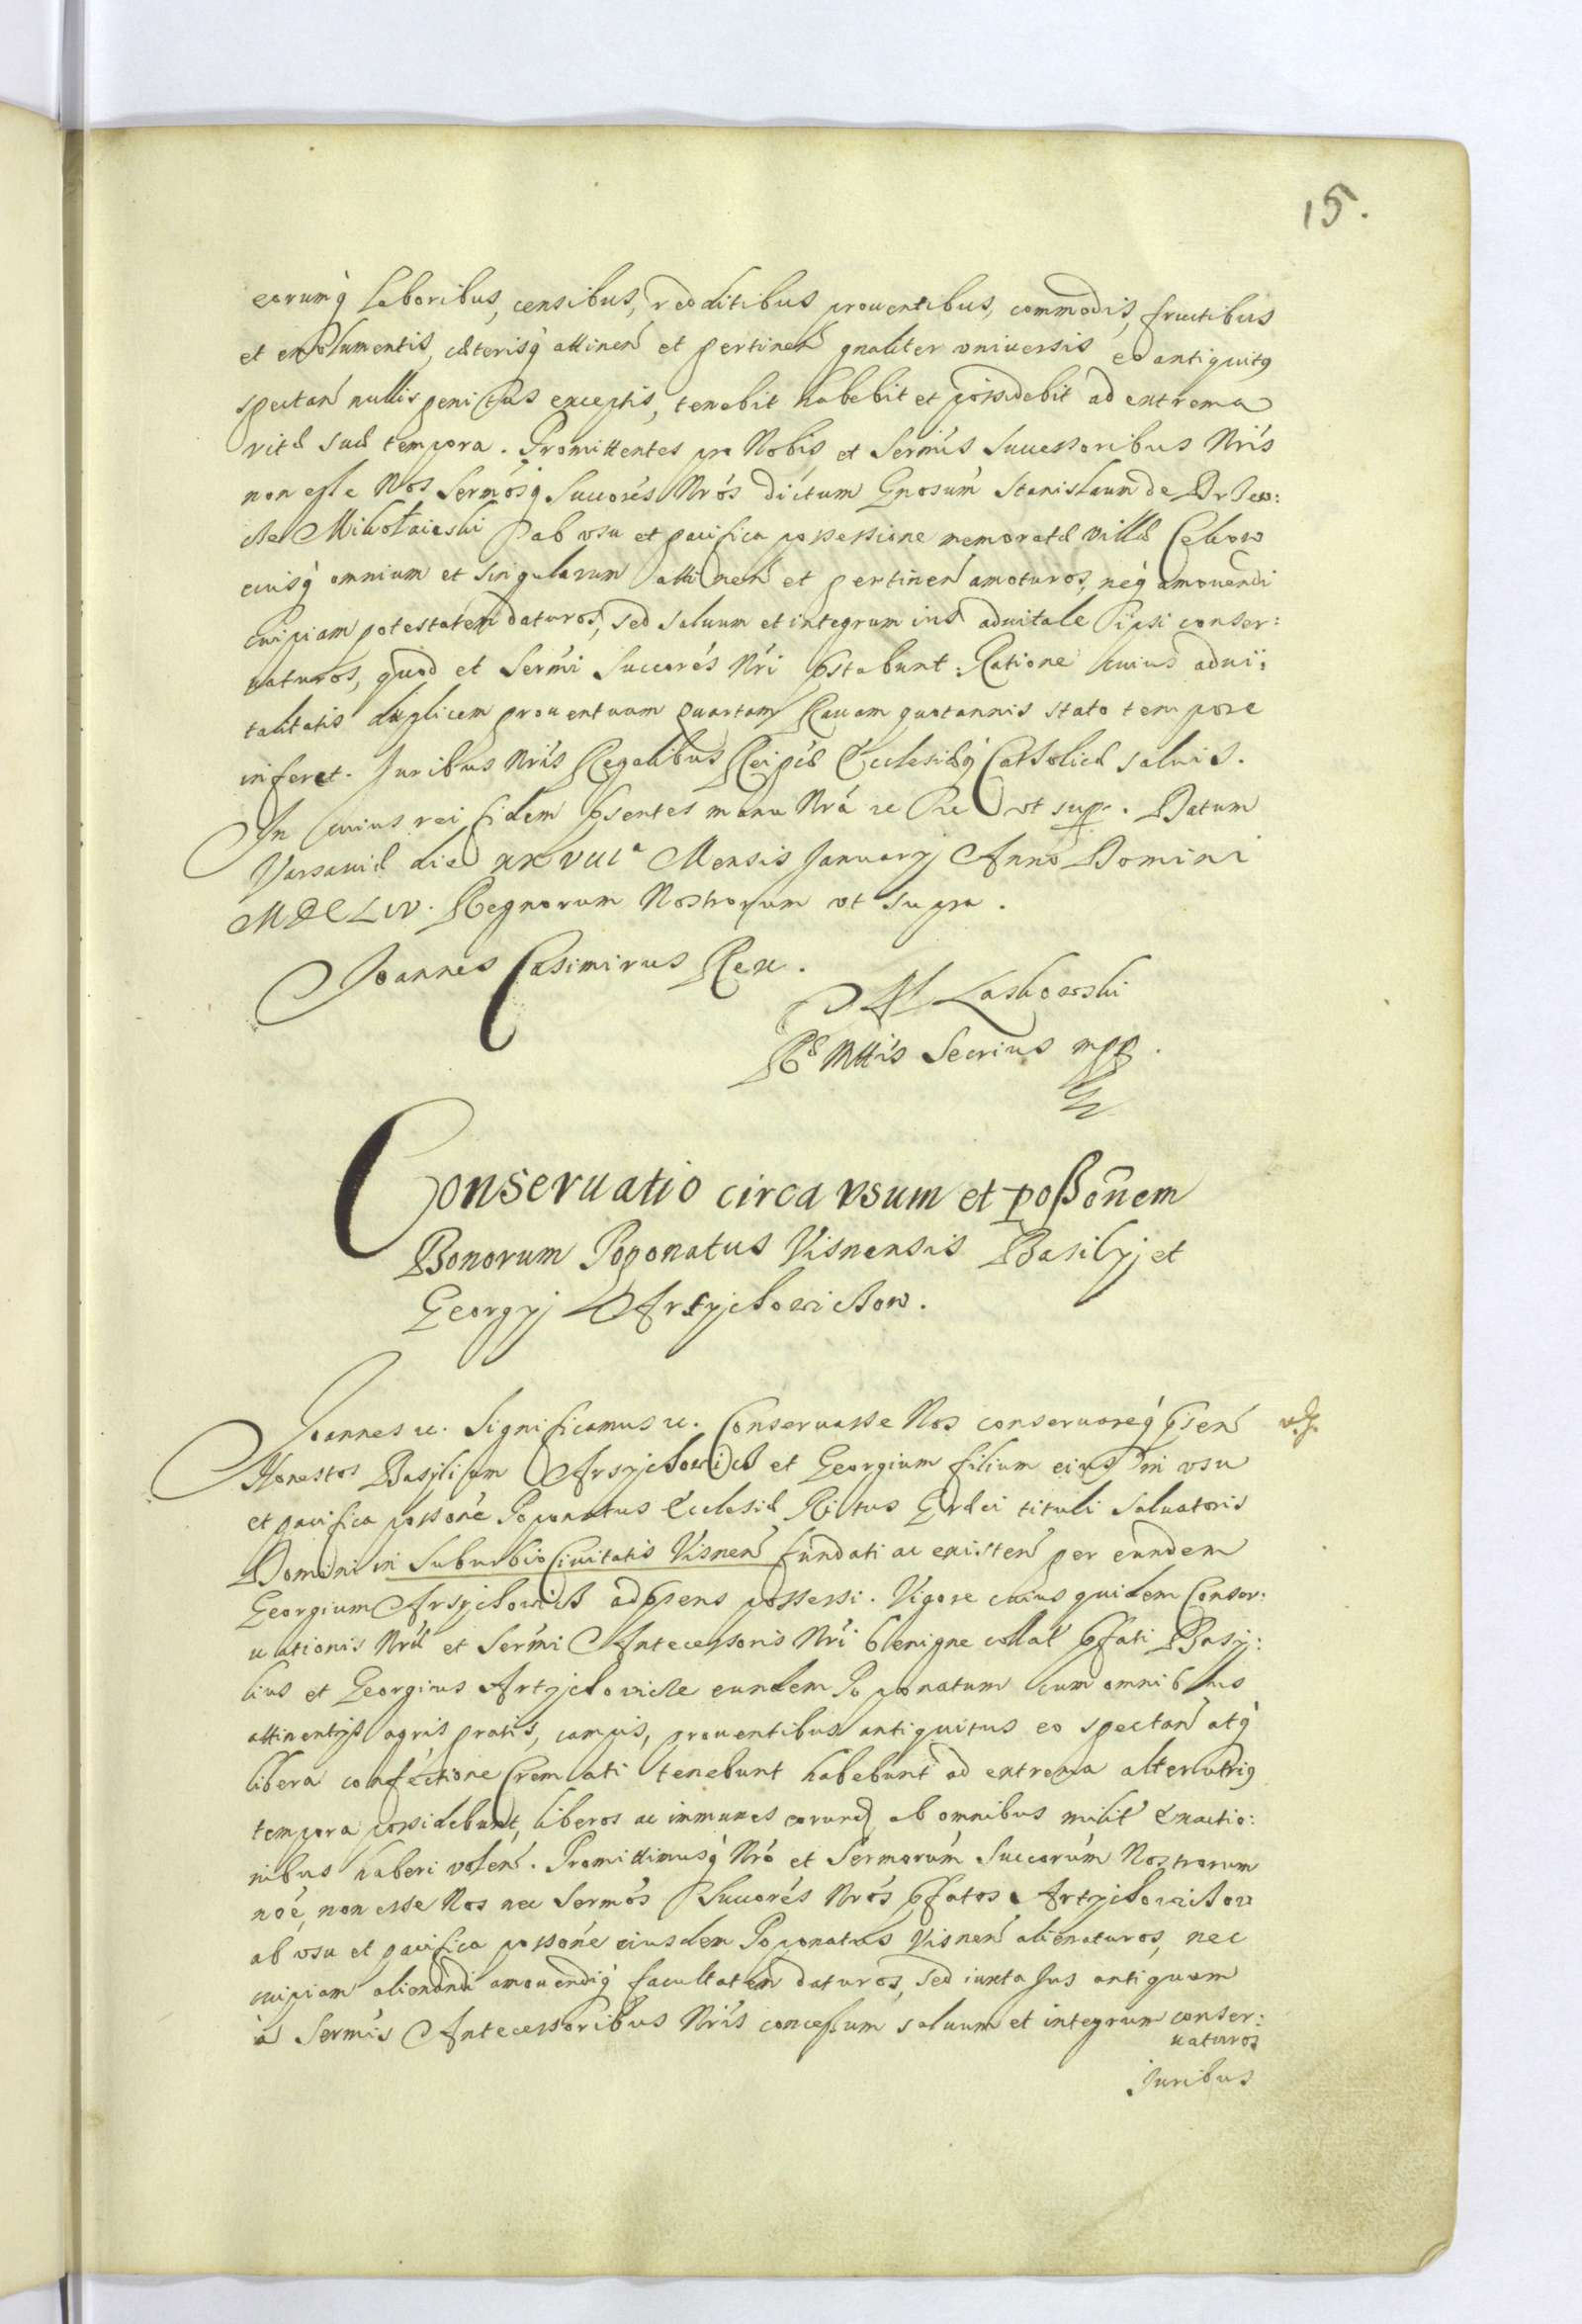 15.
eorumq́ laboribus, censibus, redditibus prouentibus, commodis, fructibus
et emolumentis, cæterisq́ attinen̄ et pertinen̄ gnaliter vniuersis eo antiquitq
spectan̄ nullis penitus exceptis, tenebit habebit et possidebit ad extrema
vitæ suæ tempora. Promittentes pro Nobis et Sermis Successoribus Nris
non esse Nos Sermosq́ Succores Nros dictum Gnosum Stanislaum de
Mikołaieski ab vsu et pacifica possessione memoratæ villæ
cuiusq́ omnium et singularum attinen̄ et pertinen̄ amoturos, neq́ amouendi
cuipiam potestatem daturos, sed saluum et integrum ius aduitale ipsi conser:
uaturos, quod et Sermi Succores Nri pstabunt. Ratione cuius adui:
talitatis duplicem prouentuum quartam Rauam quotannis stato tempore
inferet. Juribus Nris Regalibus Reipcæ Ecclesiæq́ Catholicæ saluis.
In cuius rei fidem psentes manu Nra ut supr. Datum
Varsauiæ die XXVIIIa Mensis January Anno Domini
MDCLIV. Regnorum Nostrorum vt supra.
Joannes Casimirus Rex.
Laskowski
Ræ Mttis Secrius mpp.
Conseruatio circa vsum et poßonem
Bonorum Poponatus Visnensis Basilyj et
Georgyj Artychowichow.
Joannes etc. Significamus etc. Conseruasse Nos conseruareq́ psen̄
Honestos Basylium Arsychowich et Georgium filium eius in vsu
et pacifica possone Poponatus Ecclesiæ Ritus Græci tituli Saluatoris
Domini in Suburbio Ciuitatis Visnen̄ fundati ac existen̄ per eundem
Georgium Arsychowich ad psens possessi. Vigore cuius quidem Conser:
uationis Nræ et Sermi Antecessoris Nri benigne collat pfati Basy:
lius et Georgius Artychowicze eundem Poponatum cum omnibus
attinentijs agris pratis, campis, prouentibus antiquitus eo spectan̄ atq́
libera confectione Cremati tenebunt habebunt ad extrema alterutriq
tempora possidebunt, liberos ac immunes eorund ab omnibus milit Exactio:
nibus haberi volen̄. Promittimusq́ Nro et Sermorum Succorum Nostrorum
noe, non esse Nos nec Sermos Succores Nros pfatos Artychowichow
ab vsu et pacifica possone eiusdem Poponatus Visnen̄ alienaturos, nec
cuipiam alienandi amouendiq́ facultatem daturos, sed iuxta Jus antiquum
a Sermis Antecessoribus Nris concessum saluum et integrum conser:
uaturos
Juribus